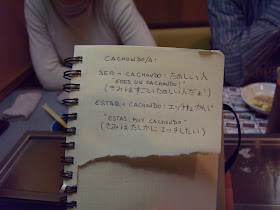 CACHONDO/A:
SER + CACHONDO: たのしい人
"ERES UN CACHONDO!"
(きみはすごいたのしい人だよ!)
ESTAR + CACHONDO: エッチなかんじ
"ESTAS MUY CACHONDO"
(きみはたしかにエッチしたい)